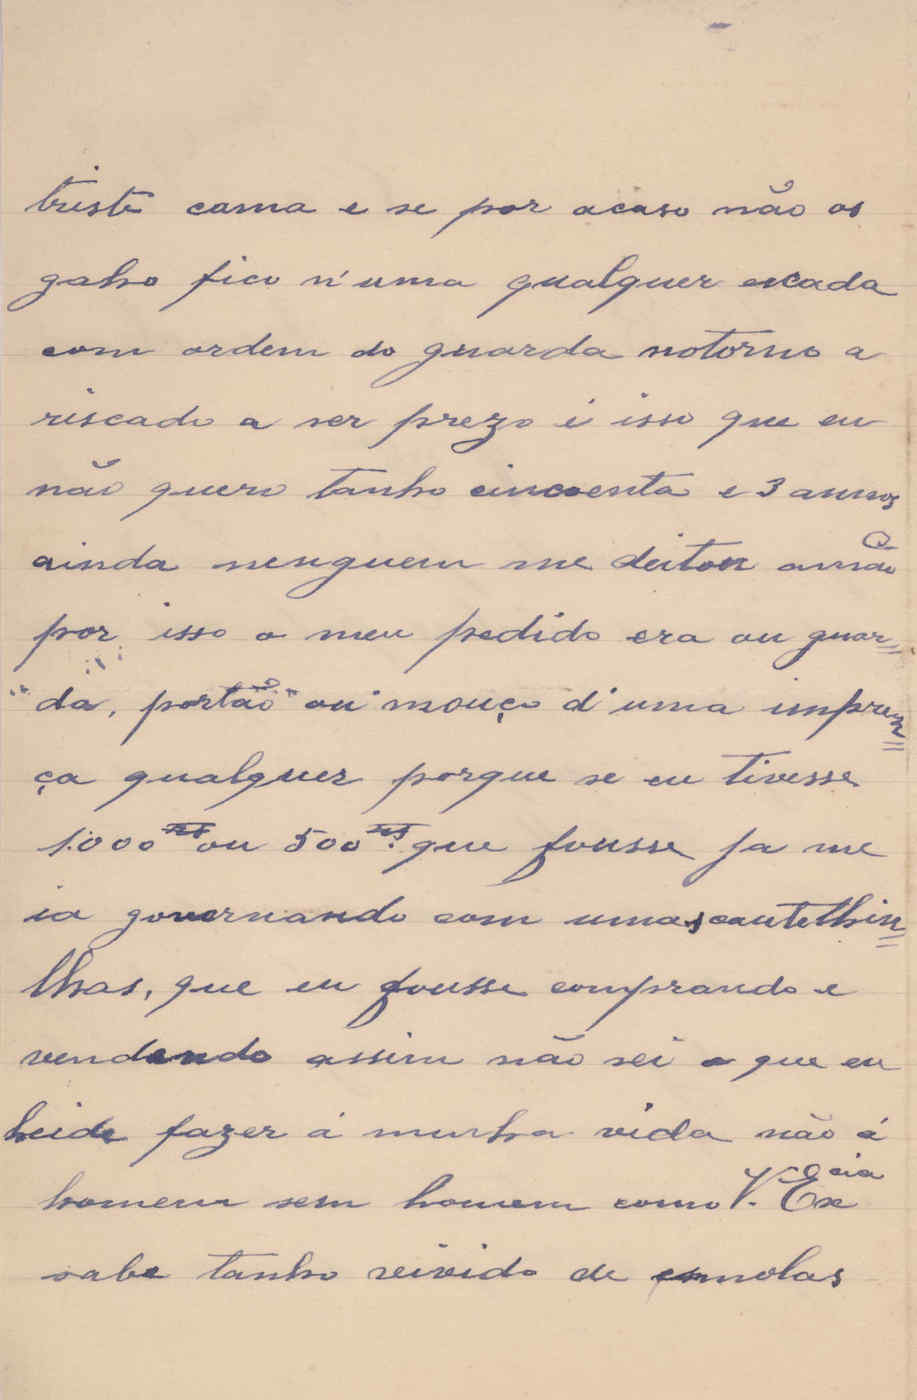 triste cama e se por acaso não os
gaho fico n'uma qualquer escada
com ordem do guarda notorno a
riscado a ser prezo i isso que eu
não quero tanho cincoenta e 3 annos
ainda nenguem me deitou amão
por isso o meu pedido era ou guar=
"da, portão" ou mouço d'uma impren=
ça qualquer porque se eu tivesse
1.000 rs ou 500 rs. que fousse ja me
ia governando com umas cautelhin=
lhas, que eu fousse comprando e
vendendo assim não sei o que eu
heide fazer á munha vida não á
homem sem homem como V. Excia
sabe tanho veivido de esmolas